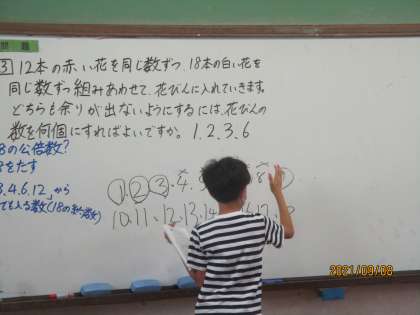 問題
3 12本の赤い花を同じ数ずつ、18本の白い花を
同じ数ずつ組みあわせて、花びんに入れていきます。
どちらも余りが出ないようにするには、花びんの
数を何個にすればよいですか。1.2.3.6
8の公倍数?
をたす
3.4.6.12 から
も入る数(18の約数)
1 2 3.4.5
8 9
10.11、12.13.14 17、
2021/09/08